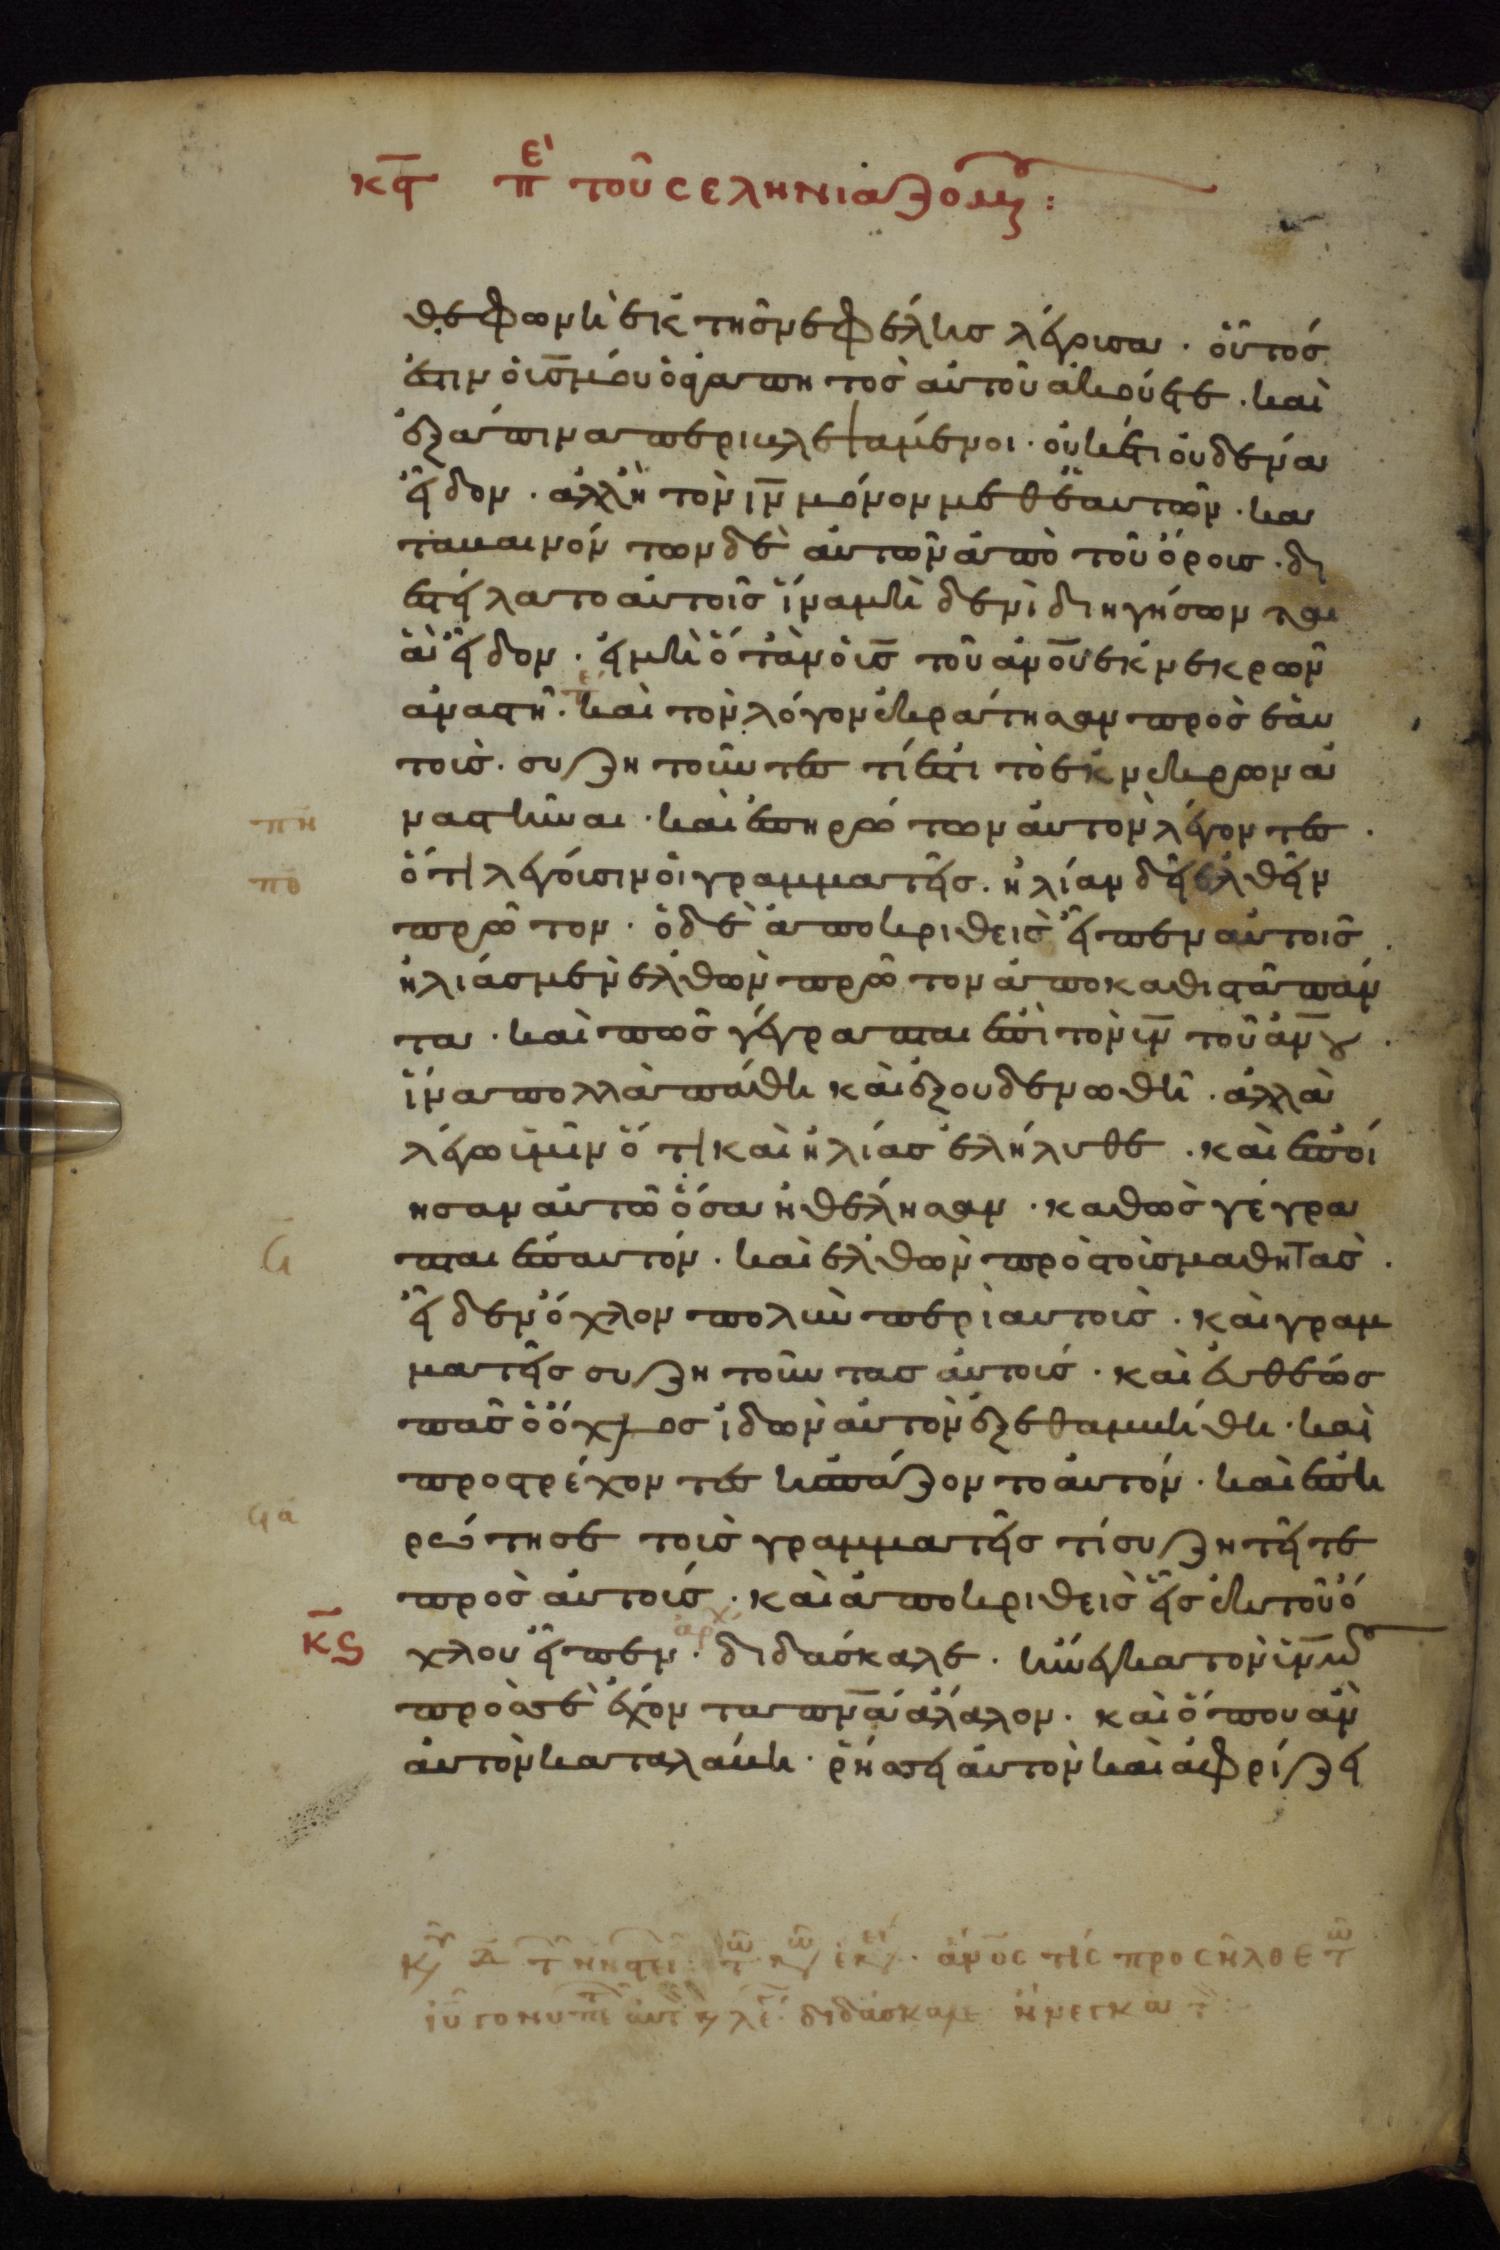 κϛ περὶ τοῦ σεληνιαζομ :
θε φωνὴ ἐκ τῆς νεφέλης λέγουσα · οὗτός
ἐστιν ὁ υἱς μου ὁ ἀγαπητὸς αὐτοῦ ἀκούετε · καὶ
ἐξάπινα περιβλεψάμενοι · οὐκέτι οὐδένα
εἶδον · ἀλλὴ τὸν ιν μόνον μεθ ἑαυτῶν · κα
ταβαινόντων δὲ αὐτῶν ἀπὸ τοῦ ὄρους · δι
εστείλατο αὐτοῖς ἵνα μὴ δενὶ διηγήσωνται
ἃ εἶδον · εἰ μὴ ὅταν ὁ υἱς τοῦ ανου ἐκ νεκρῶν
ἀναστῆ · καὶ τὸν λόγον ἐκράτησαν πρὸς ἑαυ
τοὺς · συζητοῦντες τί ἐστι τὸ ἐκ νεκρῶν ἀ
ναστῆναι · καὶ ἐπηρώτων αὐτὸν λέγοντες ·
πη
ὅτι λέγουσιν οἱ γραμματεῖς · ἠλίαν δεῖ ἐλθεῖν
πθ
πρῶτον · ὁ δὲ ἀποκριθεὶς εἶπεν αὐτοῖς ·
ἠλίας μὲν ἐλθὼν πρῶτον ἀποκαθιστᾶ πάν
τα · καὶ πῶς γέγραπται ἐπὶ τὸν υν τοῦ ανου ·
ἵνα πολλὰ πάθη καὶ ἐξουδενωθῆ · ἀλλὰ
λέγω ὑμῖν ὅτι καὶ ἠλίας ἐλήλυθε · καὶ ἐποί
ησαν αὐτῶ ὅσα ἠθέλησαν · καθὼς γέγρα
πται ἐπ αυτόν · καὶ ἐλθὼν πρὸς τοὺς μαθητὰς ·
ϙ
εἶδεν ὄχλον πολὺν περὶ αυτοὺς · καὶ γραμ
ματεῖς συζητοῦντας αὐτοίς · καὶ εὐθέως
πᾶς ὁ ὄχλος ἰδὼν αὐτὸν ἐξεθαμβήθη · καὶ
προστρέχοντες ἠσπάζοντο αὐτόν · καὶ ἐπη
ρώτησε τοὺς γραμματεῖς τί συζητεῖτε
ϙα
πρὸς αὐτούς · καὶ ἀποκριθεὶς εἷς ἐκ τοῦ ὄ
χλου εἶπεν · διδάσκαλε · ἤνεγκα τὸν υν μου
κϛ
αρχ
πρὸς σὲ ἔχοντα πνα ἄλαλον · καὶ ὅπου ἂν
αὐτὸν καταλάβη · ῥήσσει αὐτὸν καὶ ἀφρίζει
τῶ κῷ ἐκ · ανος τὶς προσῆλθε τῶ
ιυ γονυπε αὐτ κ λε · διδάσκαλε ἤνεγκα τ :